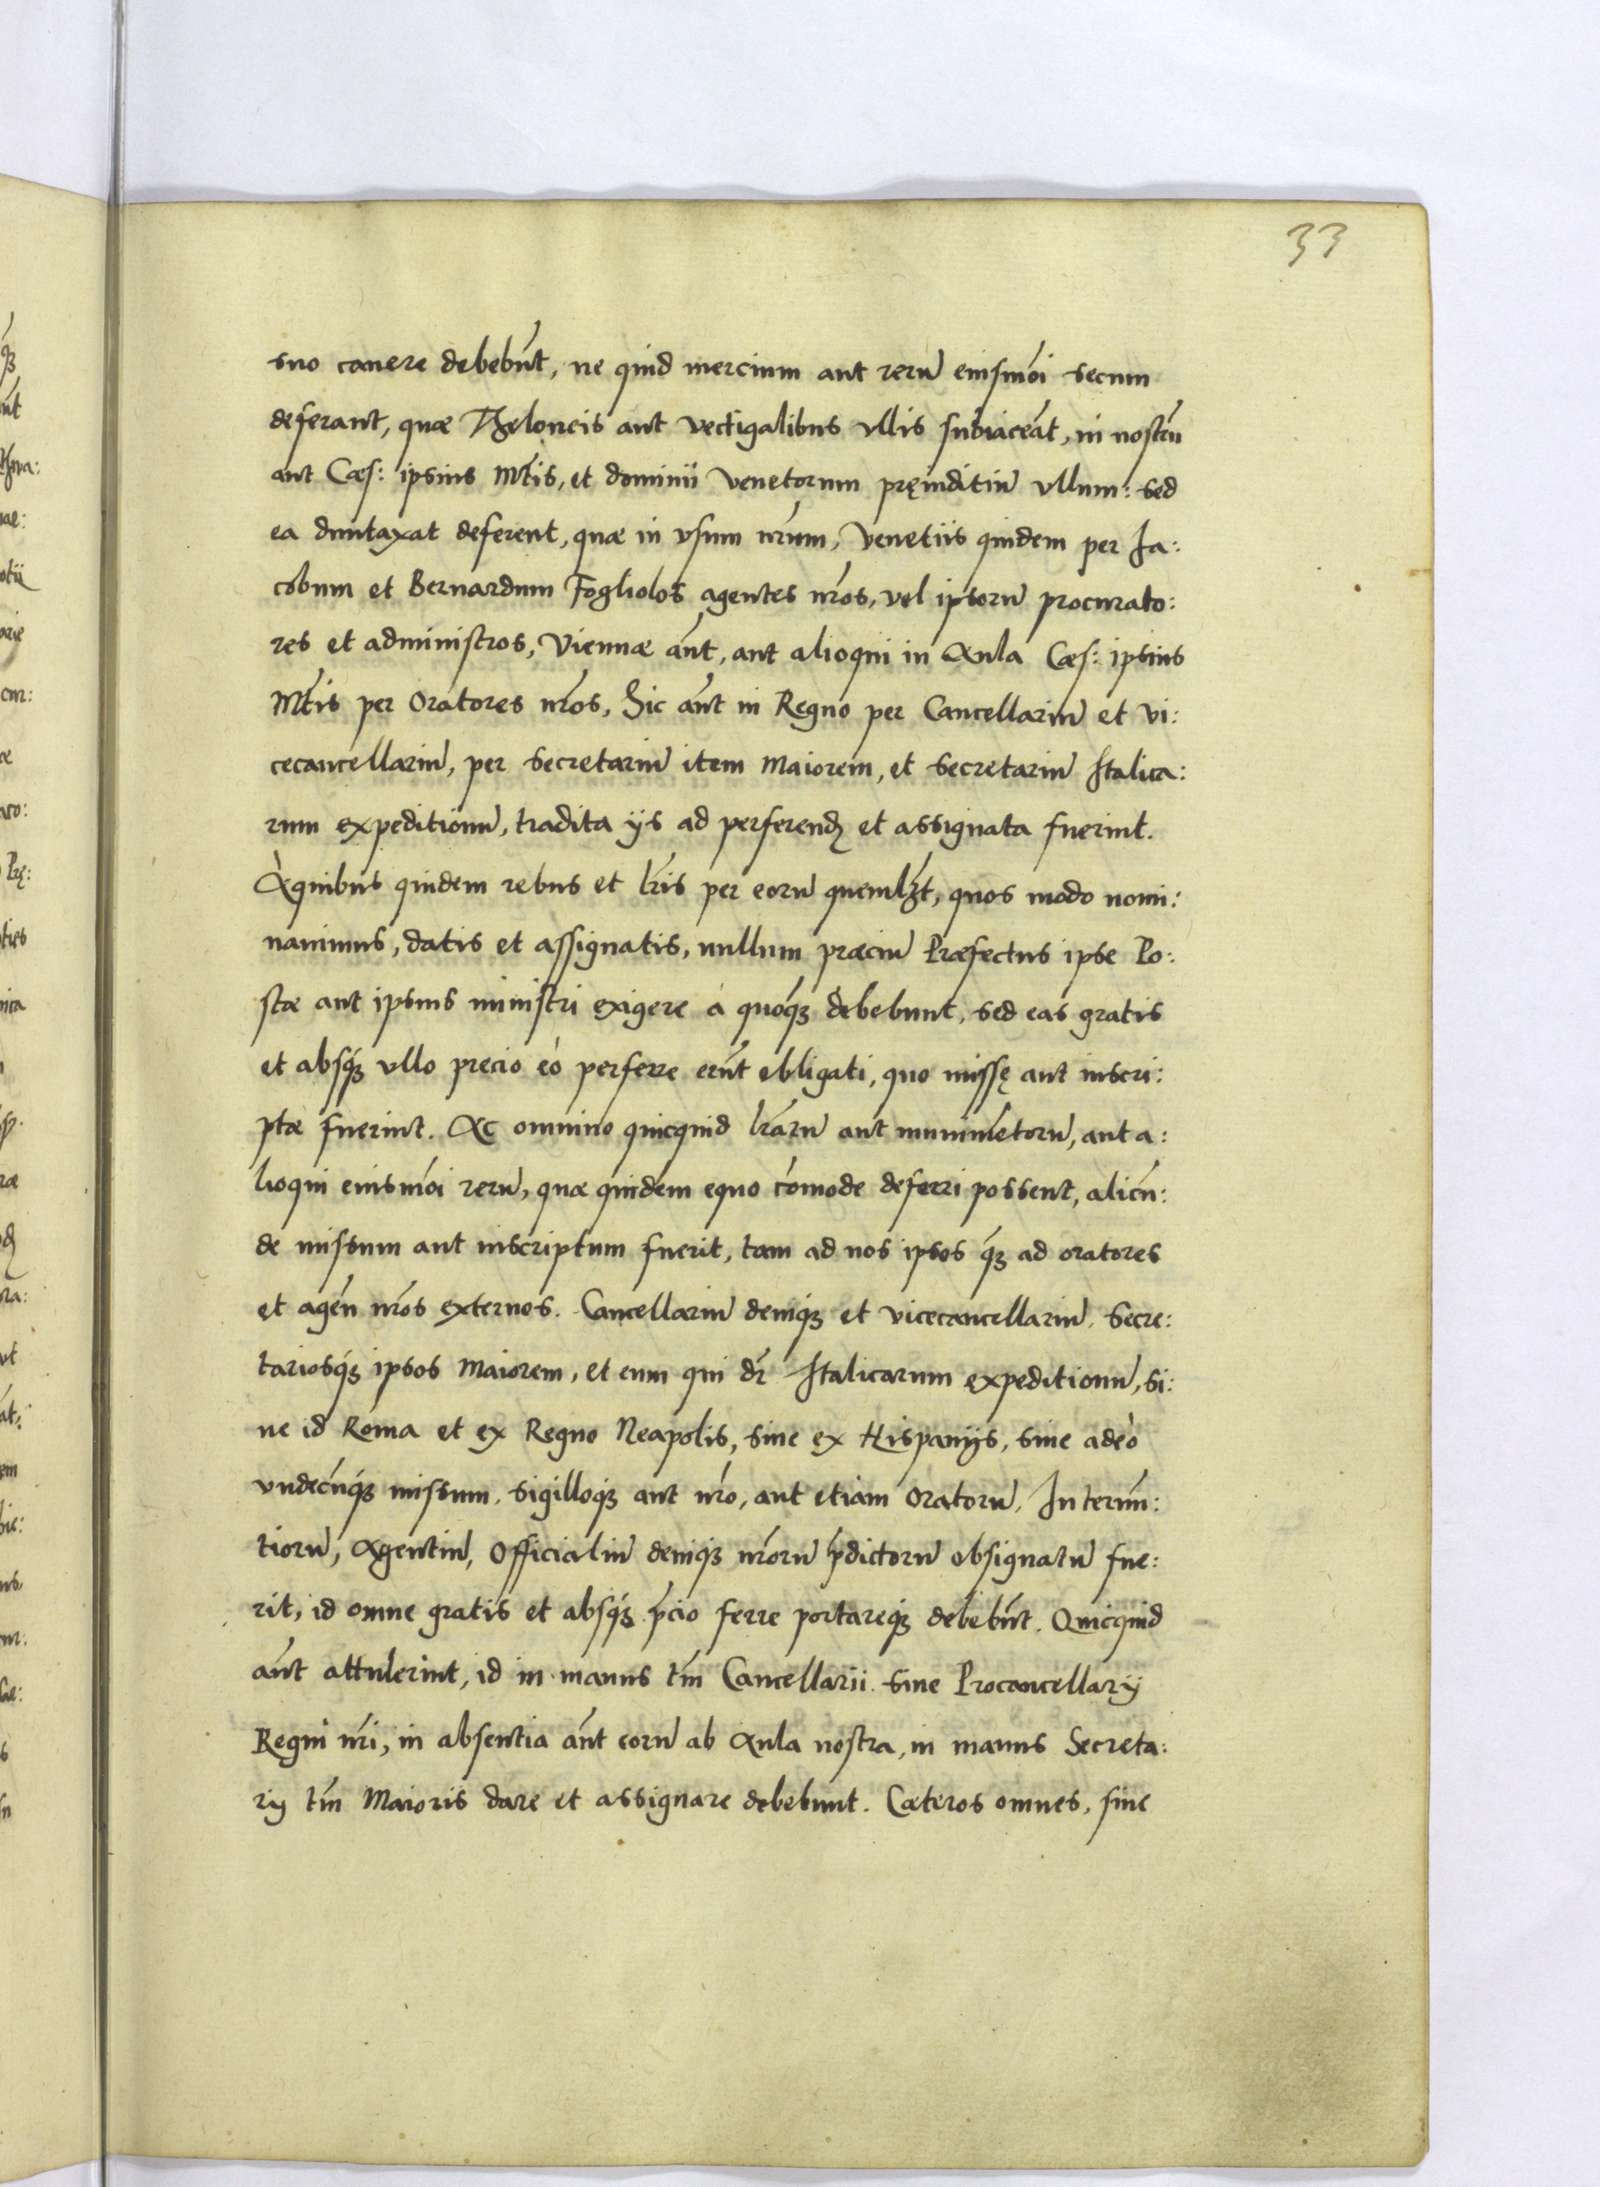 33
suo cauere debebūt, ne quid mercium aut rerū eiusmōi secum
deferant, quæ Theloneis aut vectigalibus vllis subiaceāt, in nostrū
aut Cæs: ipsius Mtis, et dominii Venetorum pręiuditiū vllum: sed
ea duntaxat deferent, quæ in vsum nrum, Venetiis quidem per Ja:
cobum et Bernardum Fogliolos agentes nros, vel ipsorū procurato:
res et administros, Viennæ aūt, aut alioqui in Aula Cæs: ipsius
Mtis per Oratores nros, Hic aūt in Regno per Cancellariū et Vi:
cecancellariū, per Secretariū item Maiorem, et Secretariū Italica:
rum expeditionū, tradita ijs ad perferend et assignata fuerint.
A quibus quidem rebus et lris per eorū quemlzt, quos modo nomi:
nauimus, datis et assignatis, nullum præciū Præfectus ipse Po:
stæ aut ipsius ministri exigere à quoqȝ debebunt, sed eas gratis
et absqȝ vllo precio eò perferre erūt obligati, quo missę aut inscri:
ptæ fuerint. Ac omnino quicquid lrarū aut munimētorū, aut a:
lioqui eiusmōi rerū, quæ quidem equo cōmode deferri possent, alicū:
de missum aut inscriptum fuerit, tam ad nos ipsos qȝ ad oratores
et agēn nros externos. Cancellariū deniqȝ et vicecancellariū, Secre:
tariosqȝ ipsos Maiorem, et eum qui dr Italicarum expeditionū, Si:
ue id Roma et ex Regno Neapolis, siue ex Hispanijs, siue adeò
vndecūqȝ missum, sigilloqȝ aut nro, aut etiam Oratorū, Internū:
tiorū, Agentiū, Officialiū deniqȝ nrorū pdictorū obsignatū fue:
rit, id omne gratis et absqȝ pcio ferre portareqȝ debebūt. Quicquid
aūt attulerint, id in manus tm̄ Cancellarii siue Procancellarij
Regni nri, in absentia aūt eorū ab Aula nostra, in manus Secreta:
rij tm̄ Maioris dare et assignare debebunt. Cæteros omnes, siue